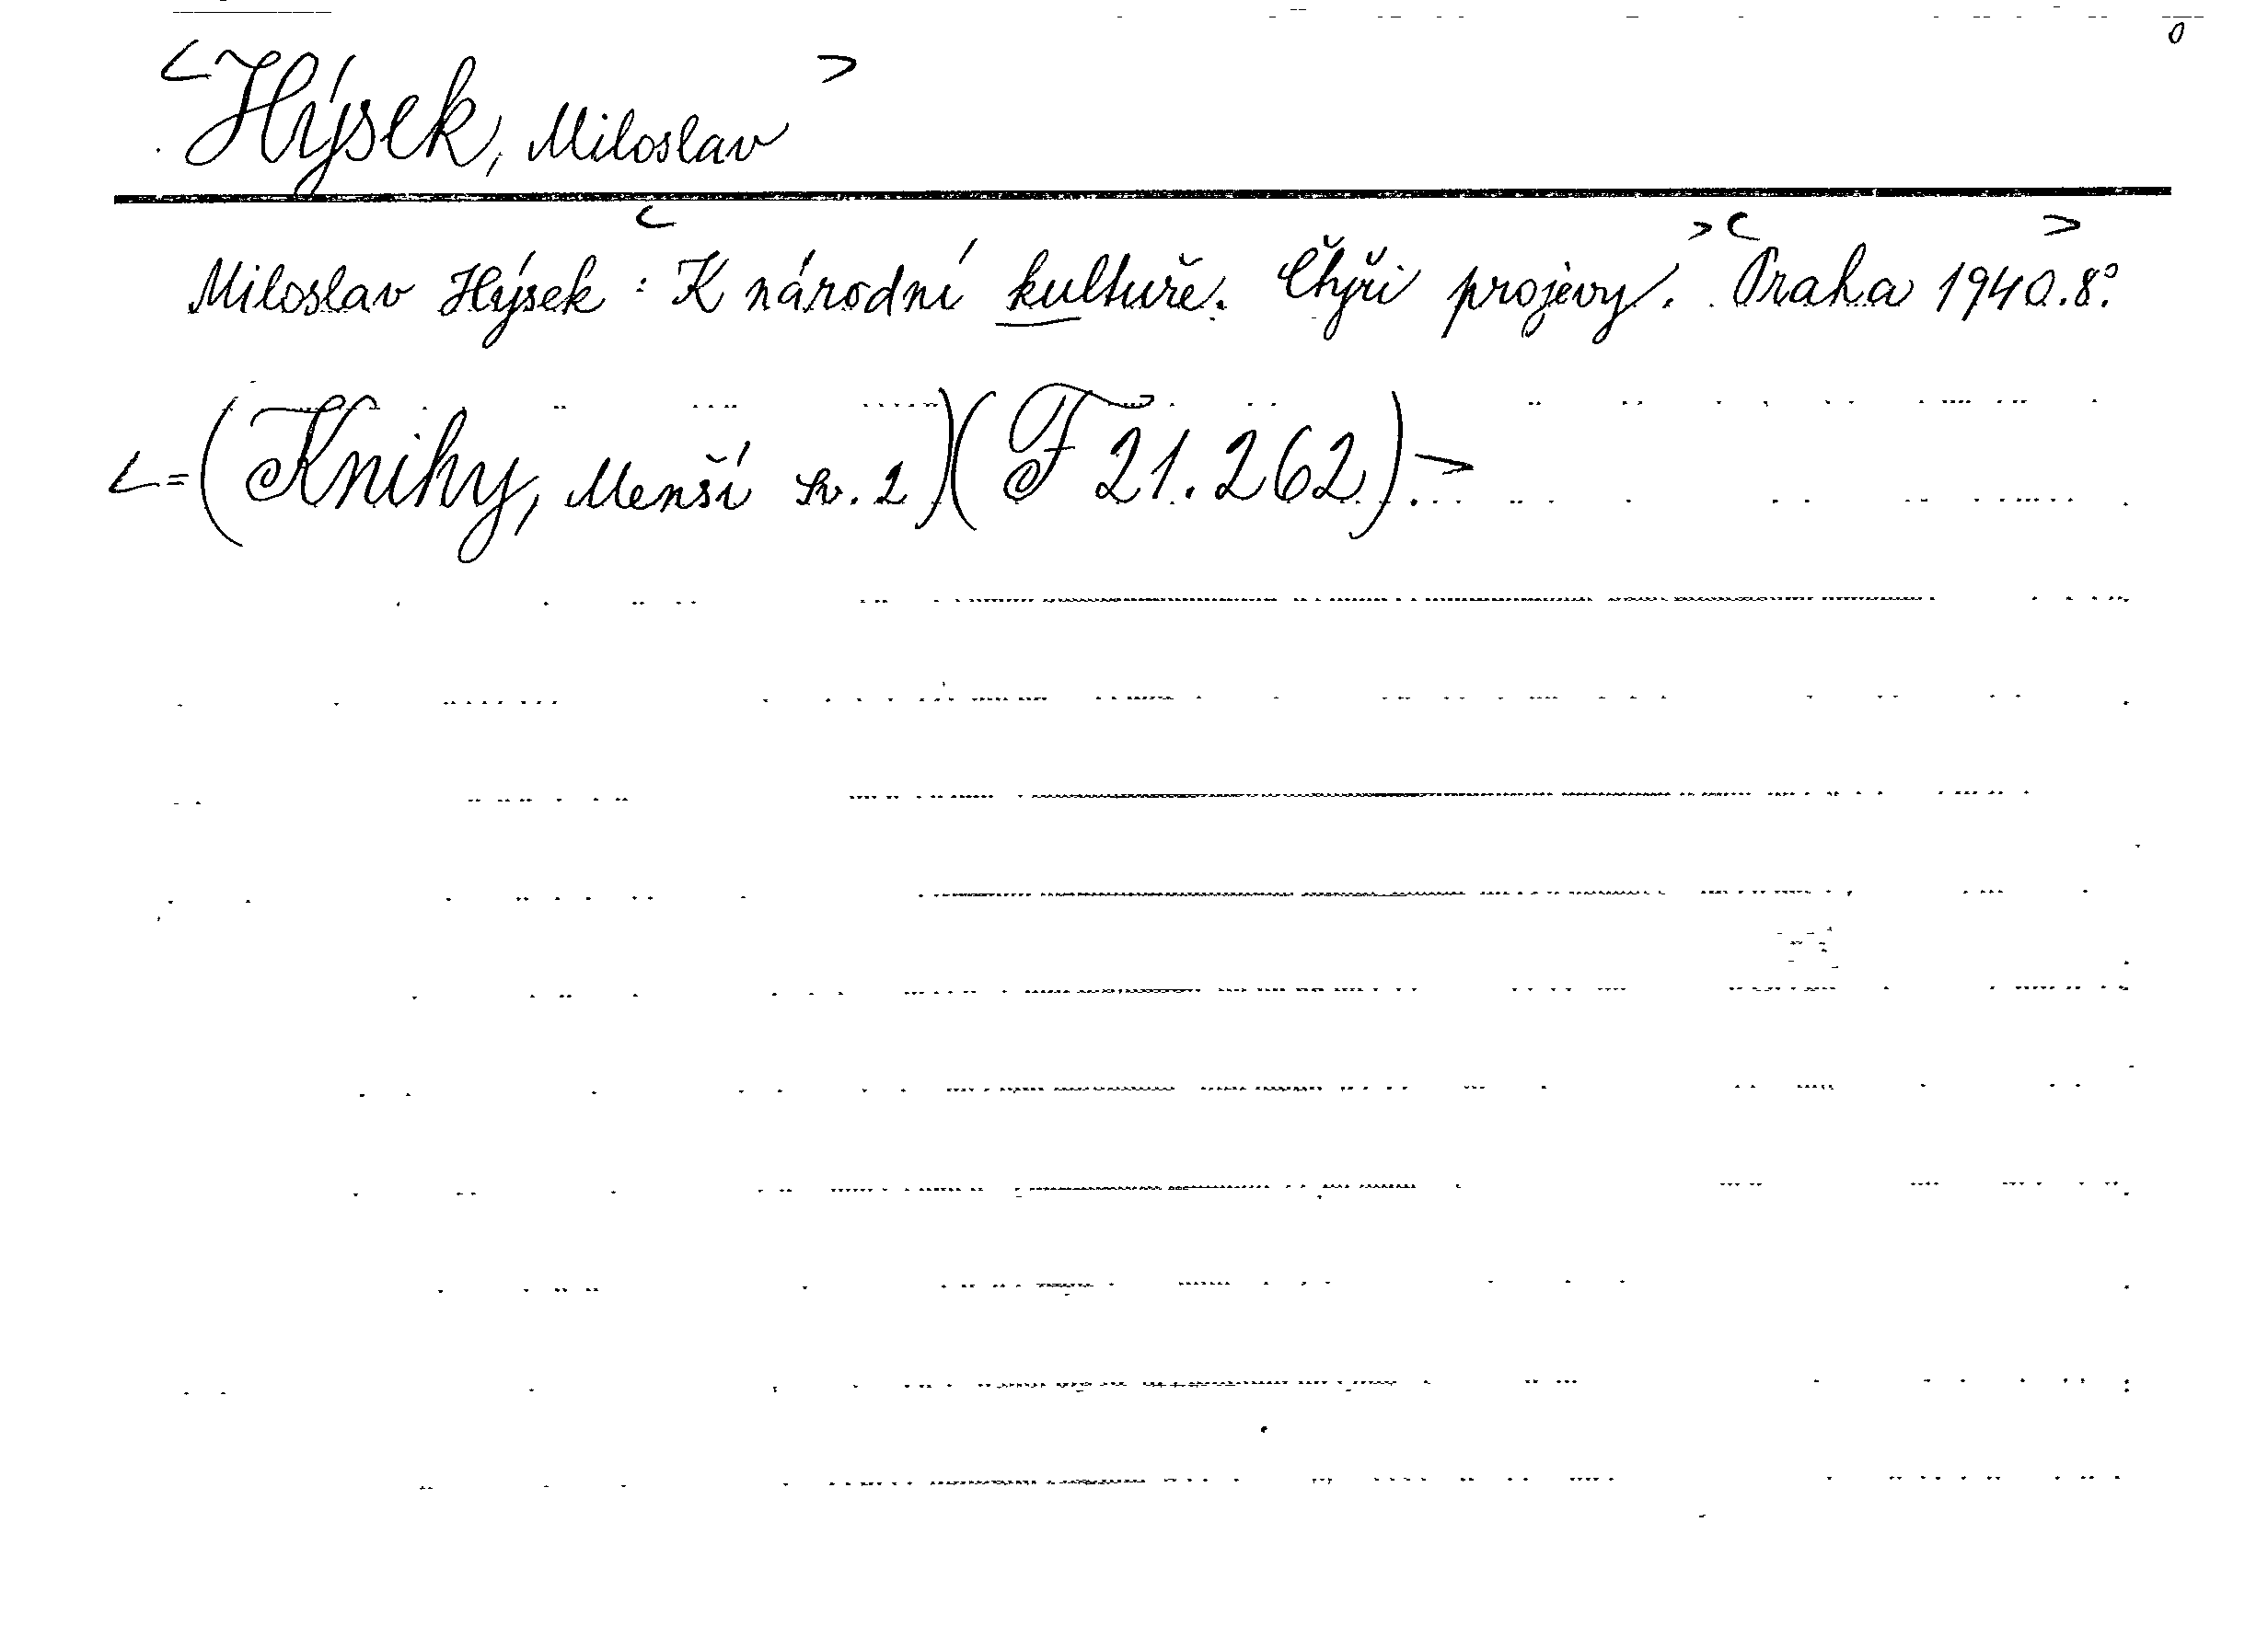 <Hýsek, Miloslav>
Miloslav Hýsek: <K národní kultuře. Čtyři projevy.> <Praha 1940. 8°.>
<=(Knihy, Menší sv. 2)(F 21.262).>